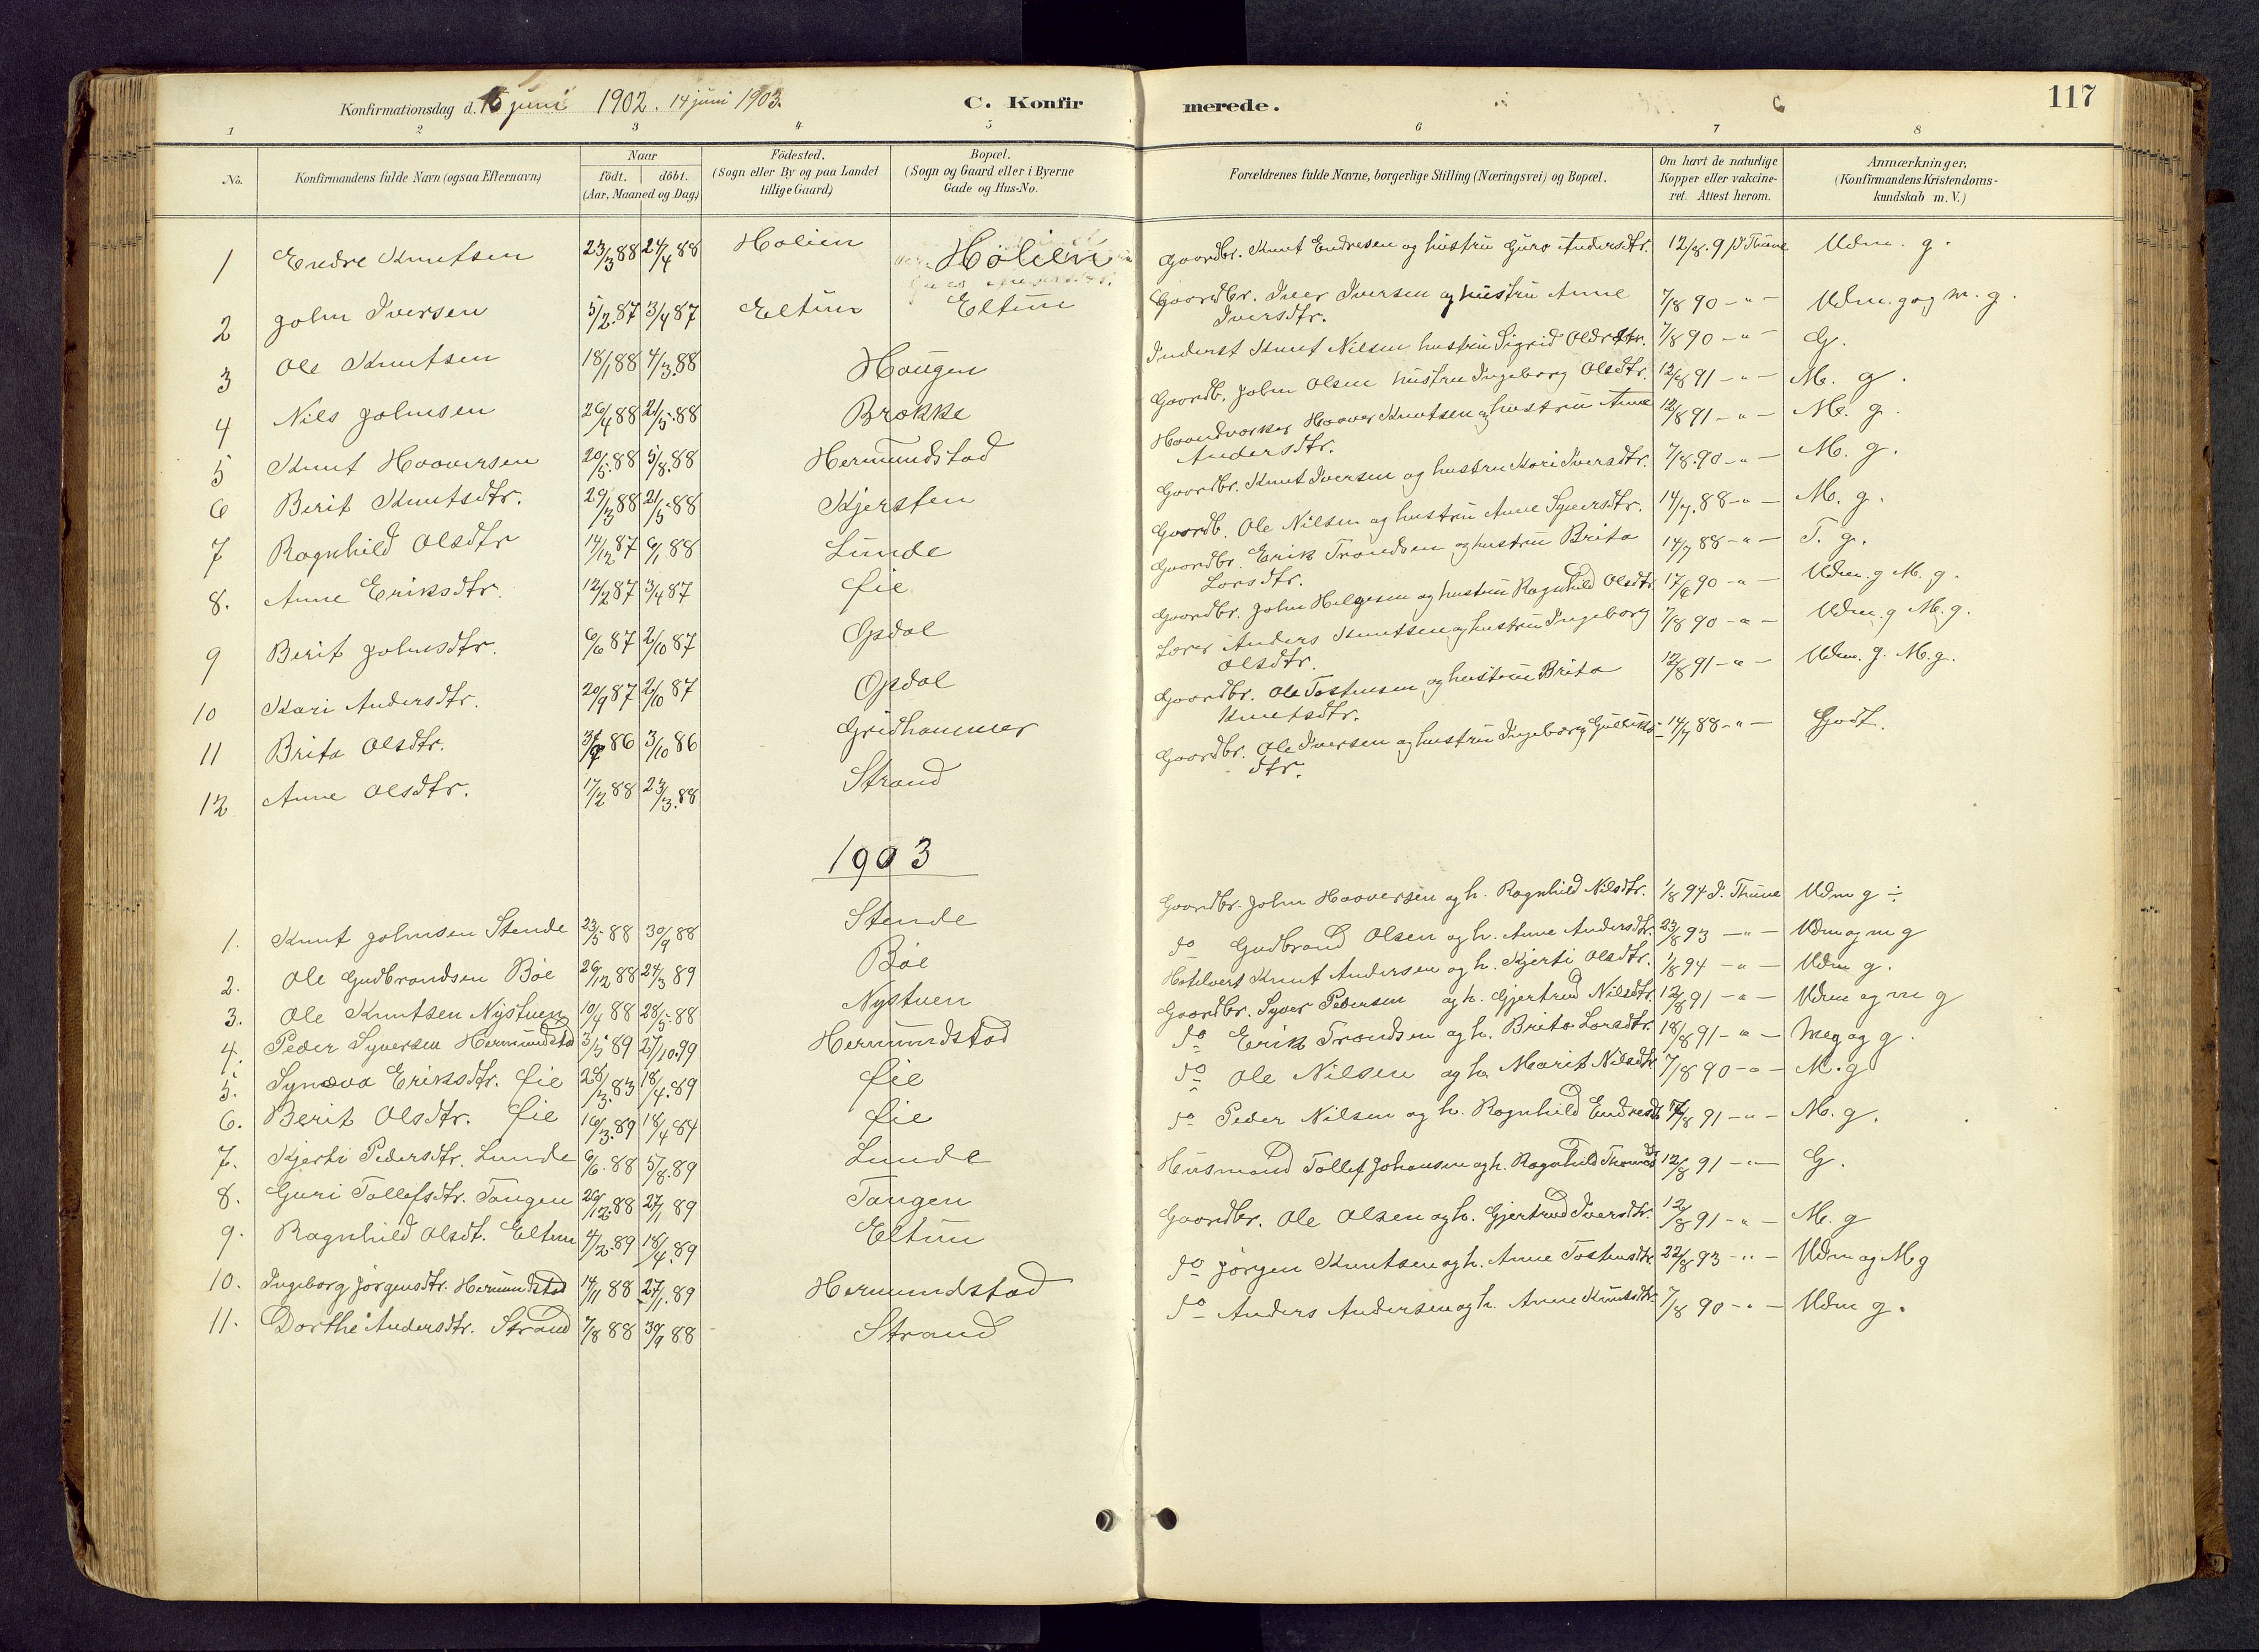 117
Konfirmationsdag d. 15 juni 1902. 14 juni 1903.
C. Konfirmerede.
1 2 3 4 5 6 7 8
No.
Konfirmandens fulde Navn (ogsaa Efternavn)
Naar
födt. döbt.
(Aar, Maaned og Dag)
Födested.
(Sogn eller By og paa Landet
tillige Gaard)
Bopæl.
(Sogn og Gaard eller i Byerne
Gade og Hus-No.
Forældrenes fulde Navne, borgerlige Stilling (Næringsvei) og Bopæl.
Om havt de naturlige
Kopper eller vakcine-
ret. Attest herom.
Anmærkninger,
(Konfirmandens Kristendoms-
kundskab m. V.)
1 Endre Knutsen 23/3 88 24/4 88 Holien Holien Gaardbr. Knut Endresen og hustru Guro Andersdtr. 12/8. 91 P Thune Udm. g.
2 John Iversen 5/2. 87 3/4 87 Eltun Eltun Gaardbr. Iver Iversen og hustru Anne
Iversdtr. 7/8 90 - " - Udm. g og m. g.
3 Ole Knutsen 18/1 88 4/3. 88 Haugen Inderst Knut Nilsen hustru Sigrid Olsdtr. 7/8 90 - " - G.
4 Nils Johnsen 26/4 88 21/5. 88 Brække Gaardb. John Olsen hustru Ingeborg Olsdtr. 12/8 91 - " - M. g.
5 Knut Haaversen 20/5. 88 5/8. 88 Hermundstad Haandværker Haaver Knutsen og hustru Anne
Andersdtr. 12/8 91 - " - M. g.
6 Berit Knutsdtr. 29/3 88 21/5 88 Kjersten Gaardbr. Knut Iversen og hustru Kari Iversdtr. 7/8. 90 - " - M. g.
7 Ragnhild Olsdtr 14/12 87 6/1 88 Lunde Gaardb. Ole Nilsen og hustru Anne Syversdtr. 14/7. 88 - " - M. g.
8. Anne Eriksdtr. 12/2 87 3/4 87 Øie Gaardbr. Erik Trondsen og hustru Brita
Larsdtr. 14/7 88 - " - T. g.
9 Berit Johnsdtr. 6/6 87 2/10 87 Opdal Gaardbr. John Helgesen og hustru Ragnhild Olsdtr. 17/6 90 - " - Udm. g M. g.
10 Kari Andersdtr. 20/9 87 2/10 87 Opdal Lærer Anders Knutsen og hustru Ingeborg
Olsdtr. 7/8 90 - " - Udm. g M. g.
11 Brita Olsdtr. 86 3/10 86 Gridhammer Gaardbr. Ole Tostensen og hustru Brita
Knutsdtr. 12/8 91 - " - Udm. g. M. g.
12 Anne Olsdtr. 17/2 88 23/3. 88 Strand Gaardbr. Ole Iversen og hustru Ingeborg Gulliks-
dtr. 14/7 88 - " - Godt.
1903
1. Knut Johnsen Stende 23/5 88 30/9 88 Stende Gaardbr. John Haaversen og h. Ragnhild Nilsdtr. 1/8 94 P. Thune Udm g ÷
2. Ole Gudbrandsen Bøe 26/12 88 24/3 89 Bøe do Gudbrand Olsen og h. Anne Andersdtr. 23/8 93 - " - Udm og m g
3. Ole Knutsen Nystuen 10/4 88 28/5. 88 Nystuen Hotelvert Knut Andersen og h. Kjerti Olsdtr. 1/8 94 - " - Udm g.
4. Peder Syversen Hermundstad 3/5 89 27/10. 99 Hermundstad Gaardbr. Syver Pedersen og h. Gjertrud Nilsdtr. 12/8 91 - " - Udm og m g
5. Synøva Eriksdtr. Øie 28/3. 83 18/4. 89 Øie do Erik Trondsen og h. Brita Larsdtr. 18/8 91 - " - Meg og g.
6. Berit Olsdtr. Øie 16/3. 89 18/4 84 Øie do Ole Nilsen og h. Marit Nilsdtr 7/8 90 - " - M. g
7. Kjerti Pedersdtr. Lunde 6/6. 88 5/8. 89 Lunde do Peder Nilsen og h. Ragnhild Endresdt /8 91 - " - M. g.
8. Guri Tollefsdtr. Tangen 26/12. 88 27/1 89 Tangen Husmand Tollef Johansen og h. Ragnhild 12/8 91 - " - G.
9. Ragnhild Olsdt. Eltun 4/2. 89 18/4. 89 Eltun Gaardbr. Ole Olsen og h. Gjertrud Iversdtr. 12/8 91 - " - M. g
10. Ingeborg Jørgensdtr. Hermundstad 14/11 88 27/1. 89 Hermundstad do Jørgen Knutsen og h. Anne Tostensdtr. 22/8 93 - " - Udm og M g
11. Dorthe Andersdtr. Strand 7/8 88 30/9 88 Strand do Anders Andersen og h. Anne Knutsdtr. 7/8 90 - " - Udm g.